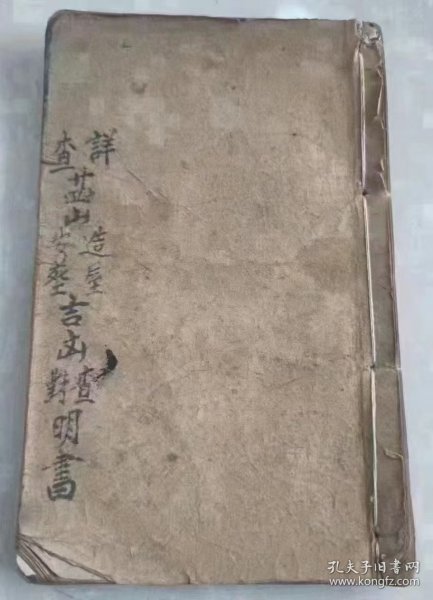 詳查山造吉凶查對明書
孔夫子旧书网
www.kongfz.com